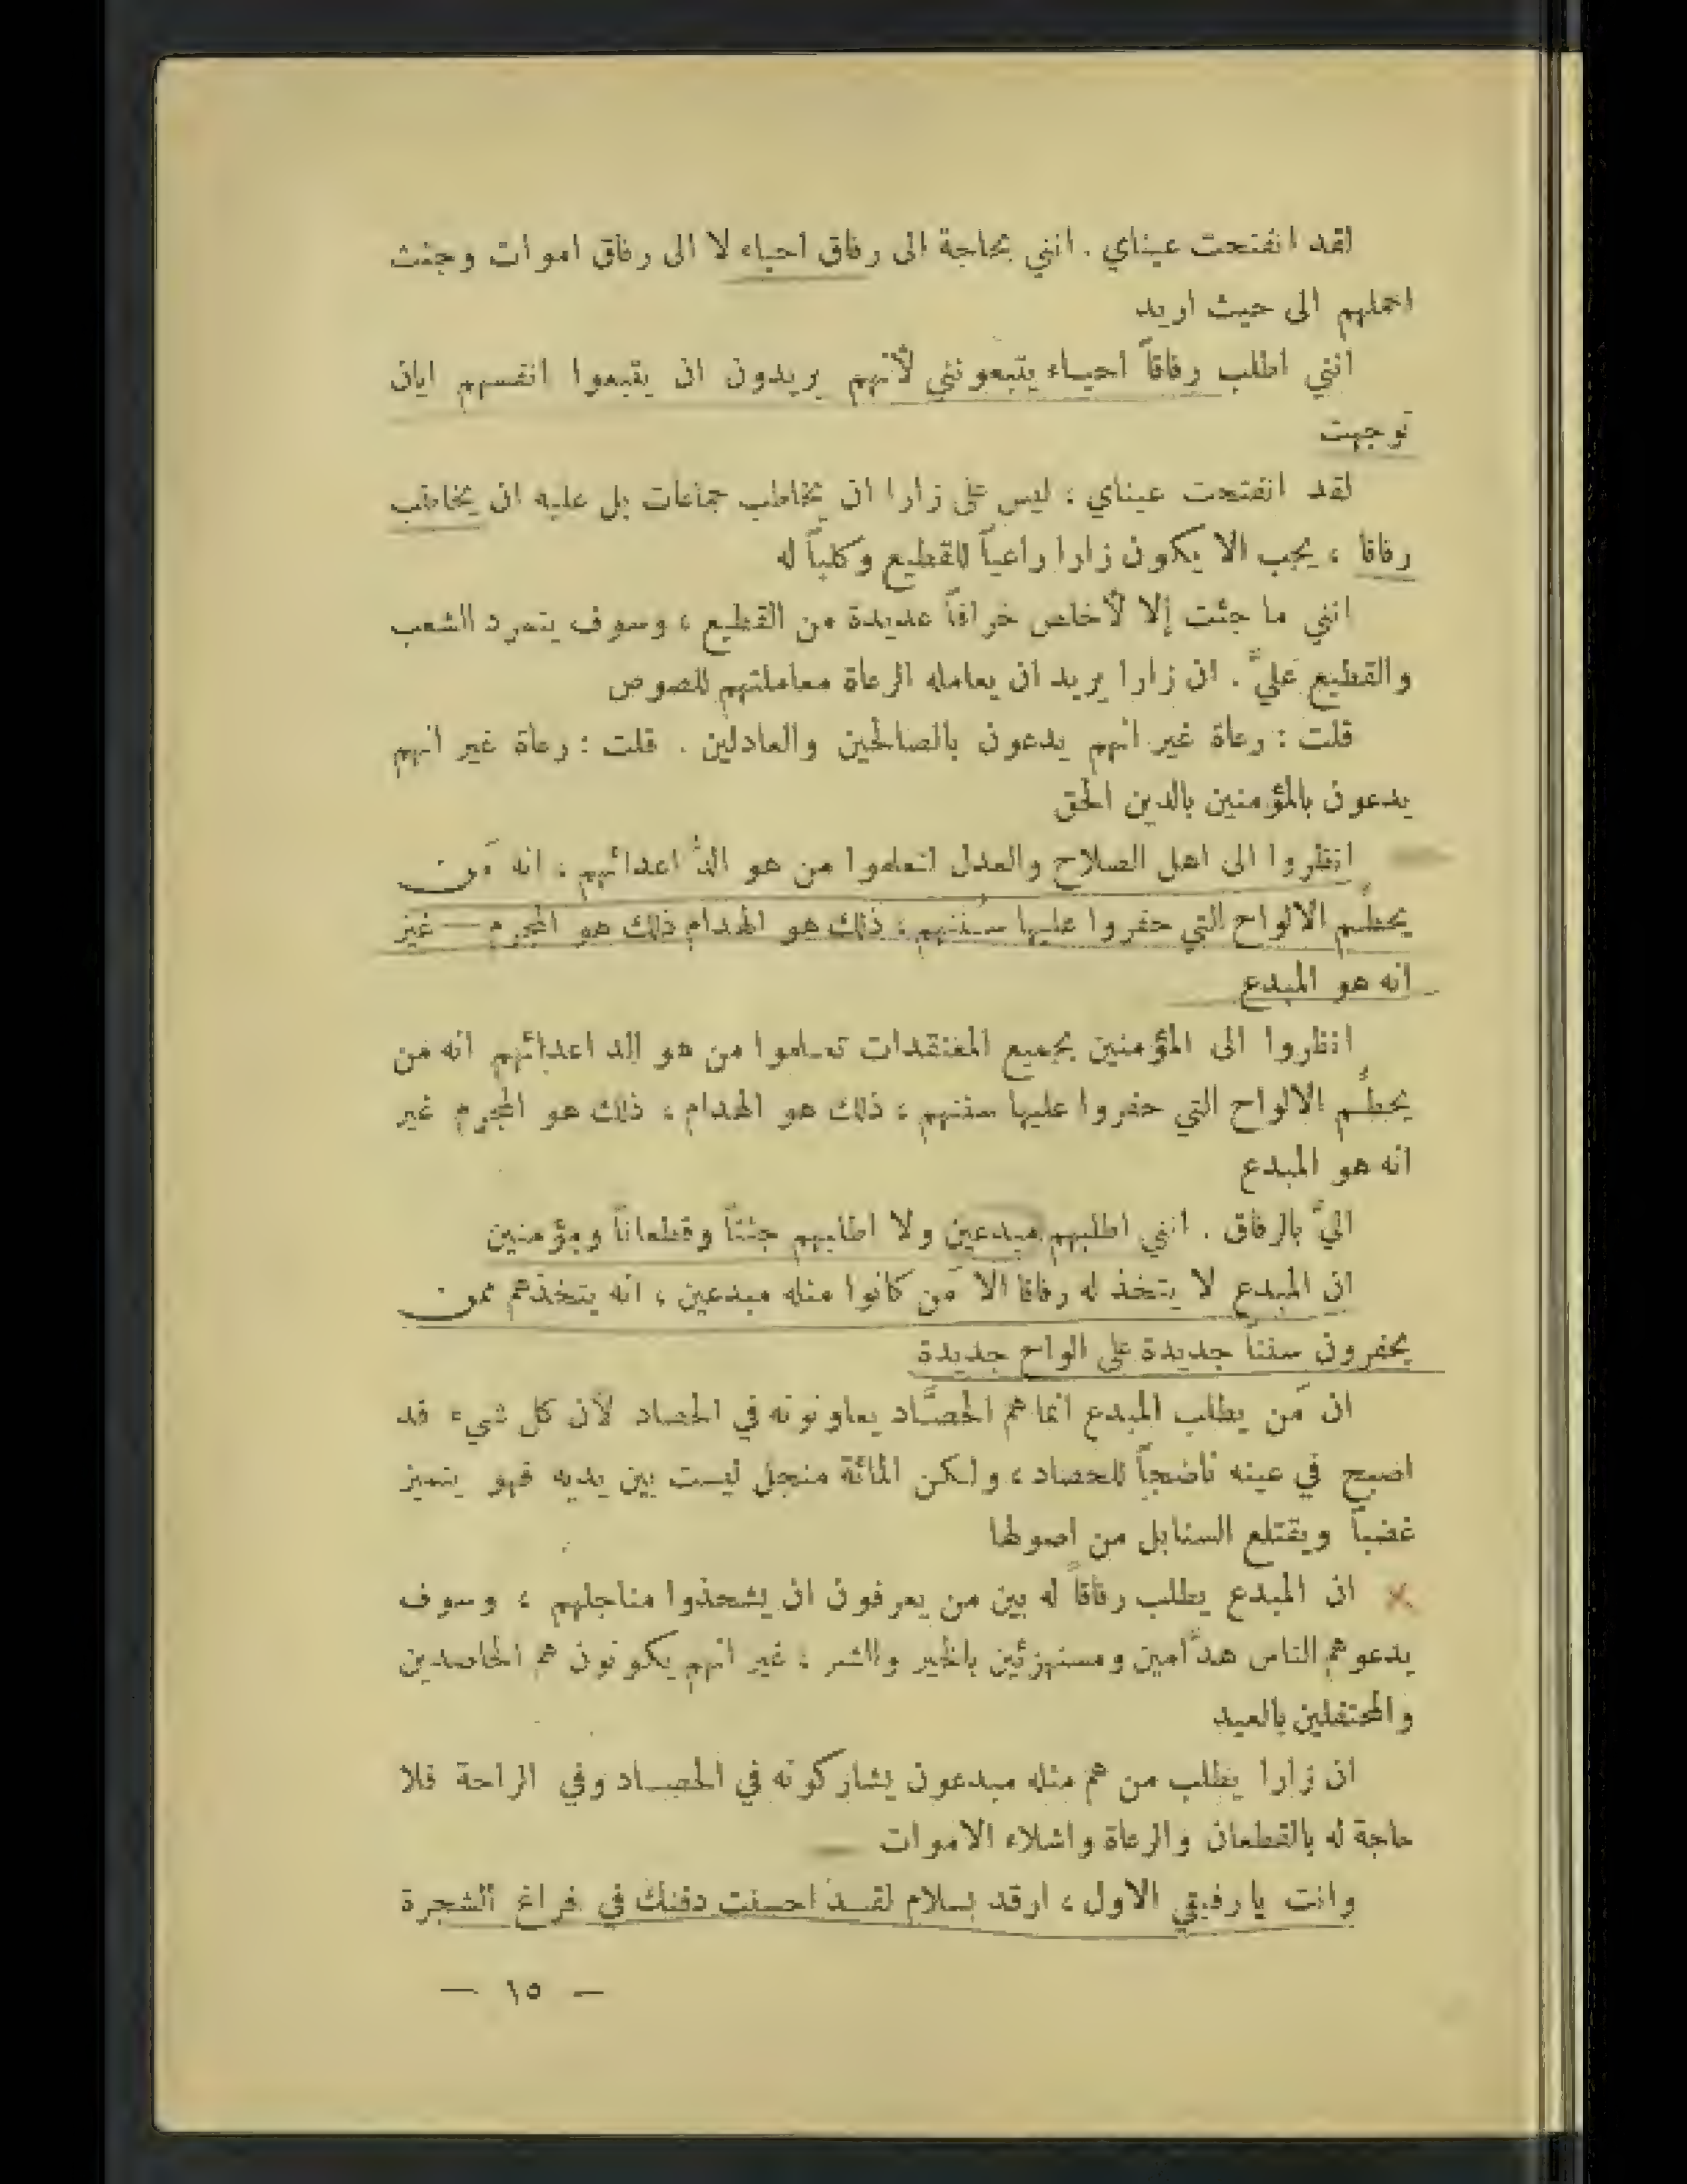 لقد انفتحت عيناي . انني بحاجة الى رفاق احياء لا الى رفاق اموات وجثث
احملهم الى حيث اريد
انني اطلب رفاقاً احياء يتبعونني لأنهم يريدون ان يتبعوا انفسهم ايان
توجهت
لقد انفتحت عيناي ، ليس على زارا ان يخاطب جماعات بل عليه ان يخاطب
رفاقا ، يجب الا يكون زارا راعياً للقطيع وكلباً له
انني ما جئت إلا لأخلص خرافاً عديدة من القطيع ، وسوف يتمرد الشعب
والقطيع عليّ . ان زارا يريد ان يعامله الرعاة معاملتهم للصوص
قلت : رعاة غير انهم يدعون بالصالحين والعادلين . قلت : رعاة غير انهم
يدعون بالمؤمنين بالدين الحق
انظروا الى اهل الصلاح والعدل لتعلموا من هو الدُّ اعدائهم ، انه مَن
يحطّم الالواح التي حفروا عليها سُننهم ، ذلك هو الهدام ذلك هو المجرم — غير
انه هو المبدع
انظروا الى المؤمنين بجميع المعتقدات تعلموا من هو الد اعدائهم انه من
يحطّم الالواح التي حفروا عليها سننهم ، ذلك هو الهدام ، ذلك هو المجرم غير
انه هو المبدع
اليّ بالرفاق . انني اطلبهم مبدعين ولا اطلبهم جثثاً وقطعاناً ومؤمنين
ان المبدع لا يتخذ له رفاقا الا مَن كانوا مثله مبدعين ، انه يتخذهم ممن
يحفرون سنناً جديدة على الواح جديدة
ان مَن يطلب المبدع انما هم الحصّاد يعاونونه في الحصاد لأن كل شيء قد
اصبح في عينه ناضجاً للحصاد ، ولكن المائة منجل ليست بين يديه فهو يتميز
غضباً ويقتلع السنابل من اصولها
ان المبدع يطلب رفاقاً له بين من يعرفون ان يشحذوا مناجلهم ، وسوف
يدعوهم الناس هدّامين ومستهزئين بالخير والشر ، غير انهم يكونون هم الحاصدين
والمحتفلين بالعيد
ان زارا يطلب من هم مثله مبدعون يشاركونه في الحصاد وفي الراحة فلا
حاجة له بالقطعان والرعاة واشلاء الاموات
وانت يا رفيقي الاول ، ارقد بسلام لقد احسنت دفنك في فراغ الشجرة
— ١٥ —